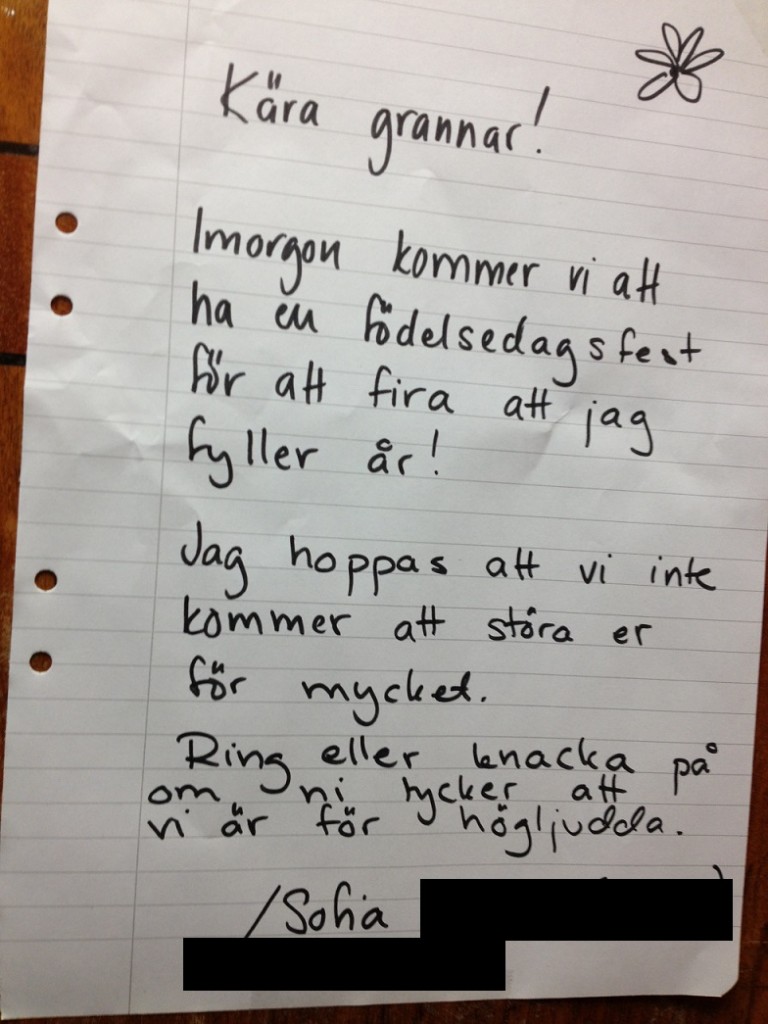 Kära grannar!
Imorgon kommer vi att
ha en födelsedagsfest
för att fira att jag
fyller år!
Jag hoppas att vi inte
kommer att störa er
för mycket.
Ring eller knacka på
om ni tycker att
vi är för högljudda.
/Sofia